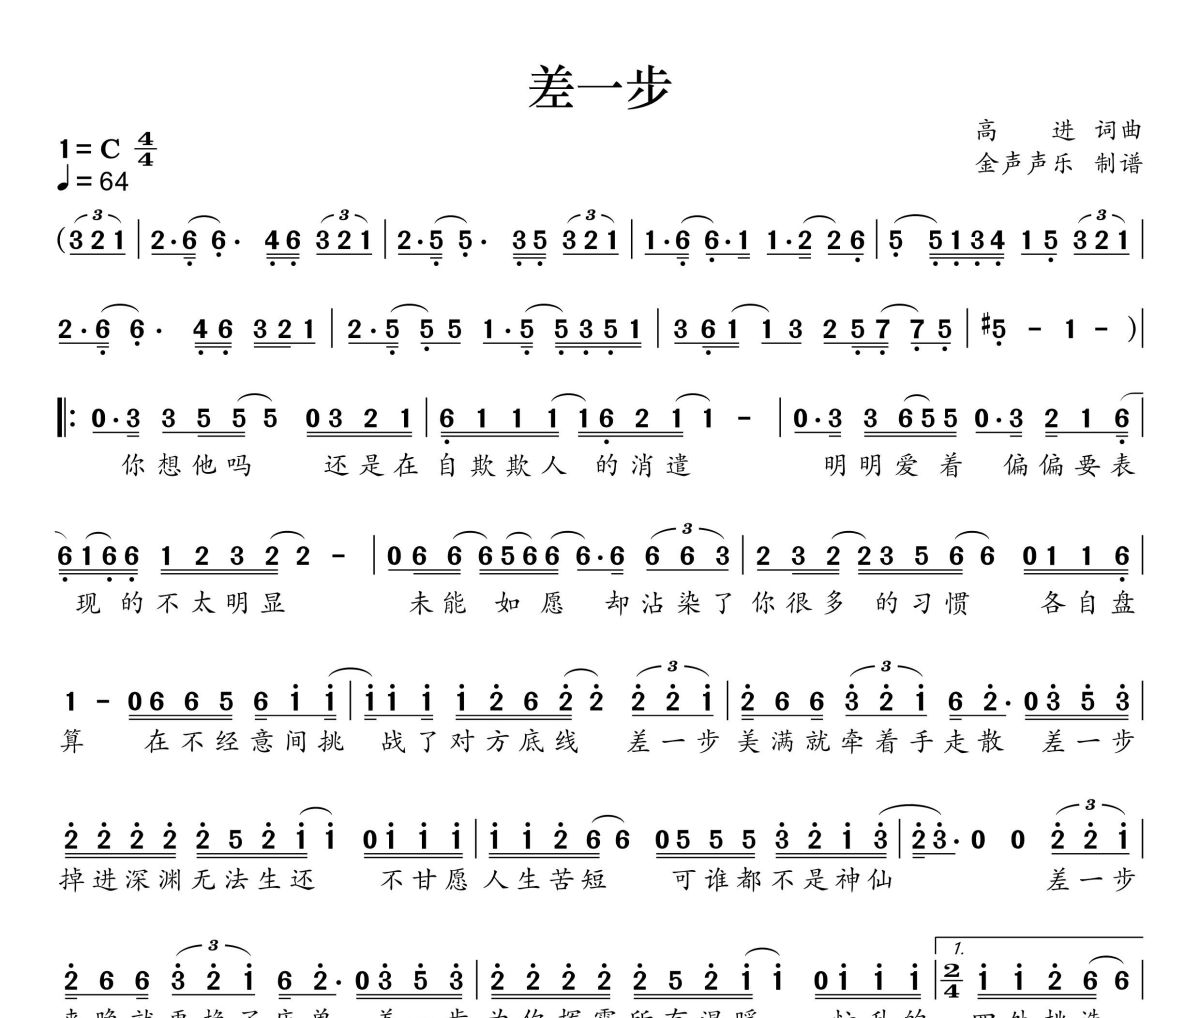 差一步
高 进 词曲
1=C 4/4
金声声乐 制谱
♩=64
(3 2 1 | 2·6 6· 4 6 3 2 1 | 2·5 5· 3 5 3 2 1 | 1·6 6·1 1·2 2 6 | 5 5 1 3 4 1 5 3 2 1 |
2·6 6· 4 6 3 2 1 | 2·5 5 5 1·5 5 3 5 1 | 3 6 1 1 3 2 5 7 7 5 | #5 - 1 - )|
|: 0·3 3 5 5 5 0 3 2 1 | 6 1 1 1 1 6 2 1 1 - | 0·3 3 6 5 5 0·3 2 1 6 |
你想他吗 还是在自欺欺人 的消遣 明明爱着 偏偏要表
6 1 6 6 1 2 3 2 2 - | 0 6 6 6 5 6 6 6·6 6 6 3 | 2 3 2 2 3 5 6 6 0 1 1 6 |
现 的不太明显 未能 如愿 却沾染了你很多 的习惯 各自盘
1 - 0 6 6 5 6 1 1 | 1 1 1 1 2 6 2 2 2 2 1 | 2 6 6 3 2 1 6 2· 0 3 5 3 |
算 在不经意间挑 战了对方底线 差一步美满就牵着手走散 差一步
2 2 2 2 2 5 2 1 1 0 1 1 1 | 1 1 2 6 6 0 5 5 5 3 2 1 3 | 2 3· 0 0 2 2 1 |
掉进深渊无法生还 不甘愿人生苦短 可谁都不是神仙 差一步
1.
2 6 6 3 2 1 6 2· 0 3 5 3 | 2 2 2 2 2 5 2 1 1 0 1 1 1 | 2/4 1 1 2 6 6 |